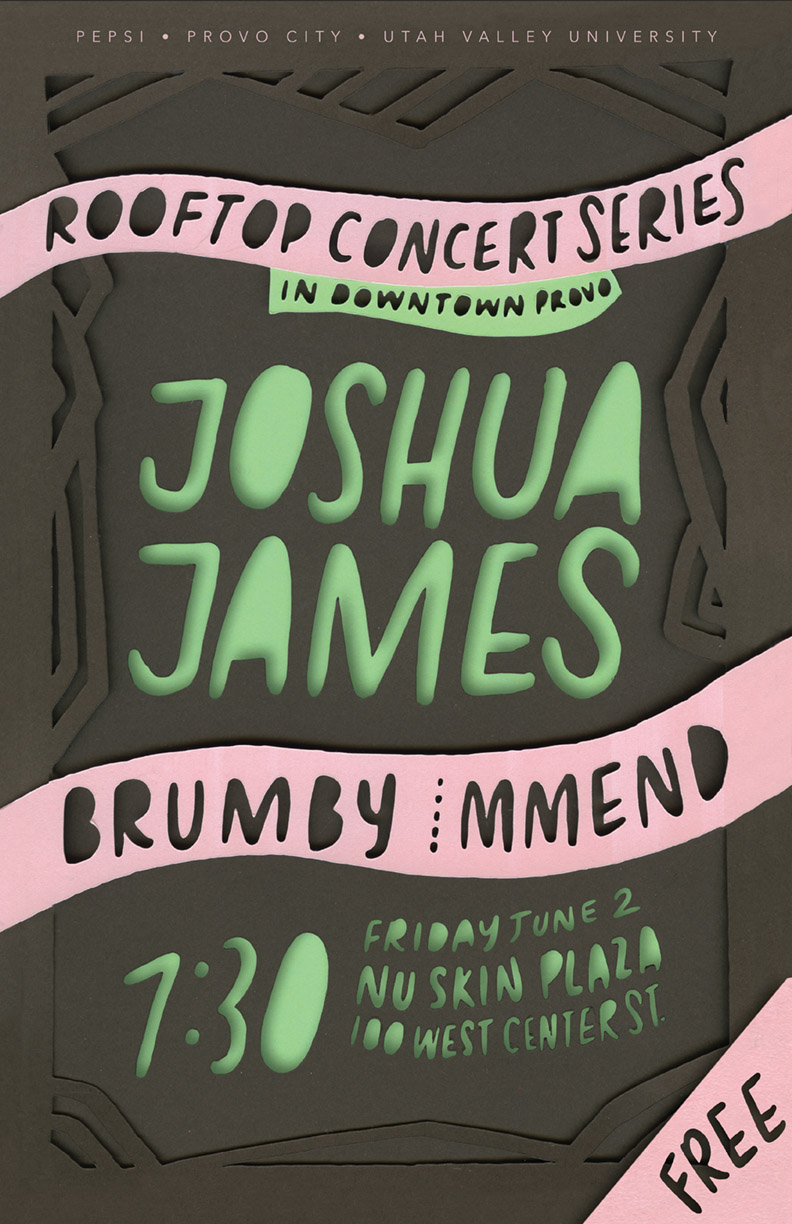 PEPSI • PROVO CITY • UTAH VALLEY UNIVERSITY
ROOFTOP CONCERT SERIES
IN DOWNTOWN PROVO
JOSHUA
JAMES
BRUMBY ⋮ MMEND
7:30
FRIDAY JUNE 2
NU SKIN PLAZA
100 WEST CENTER ST.
FREE